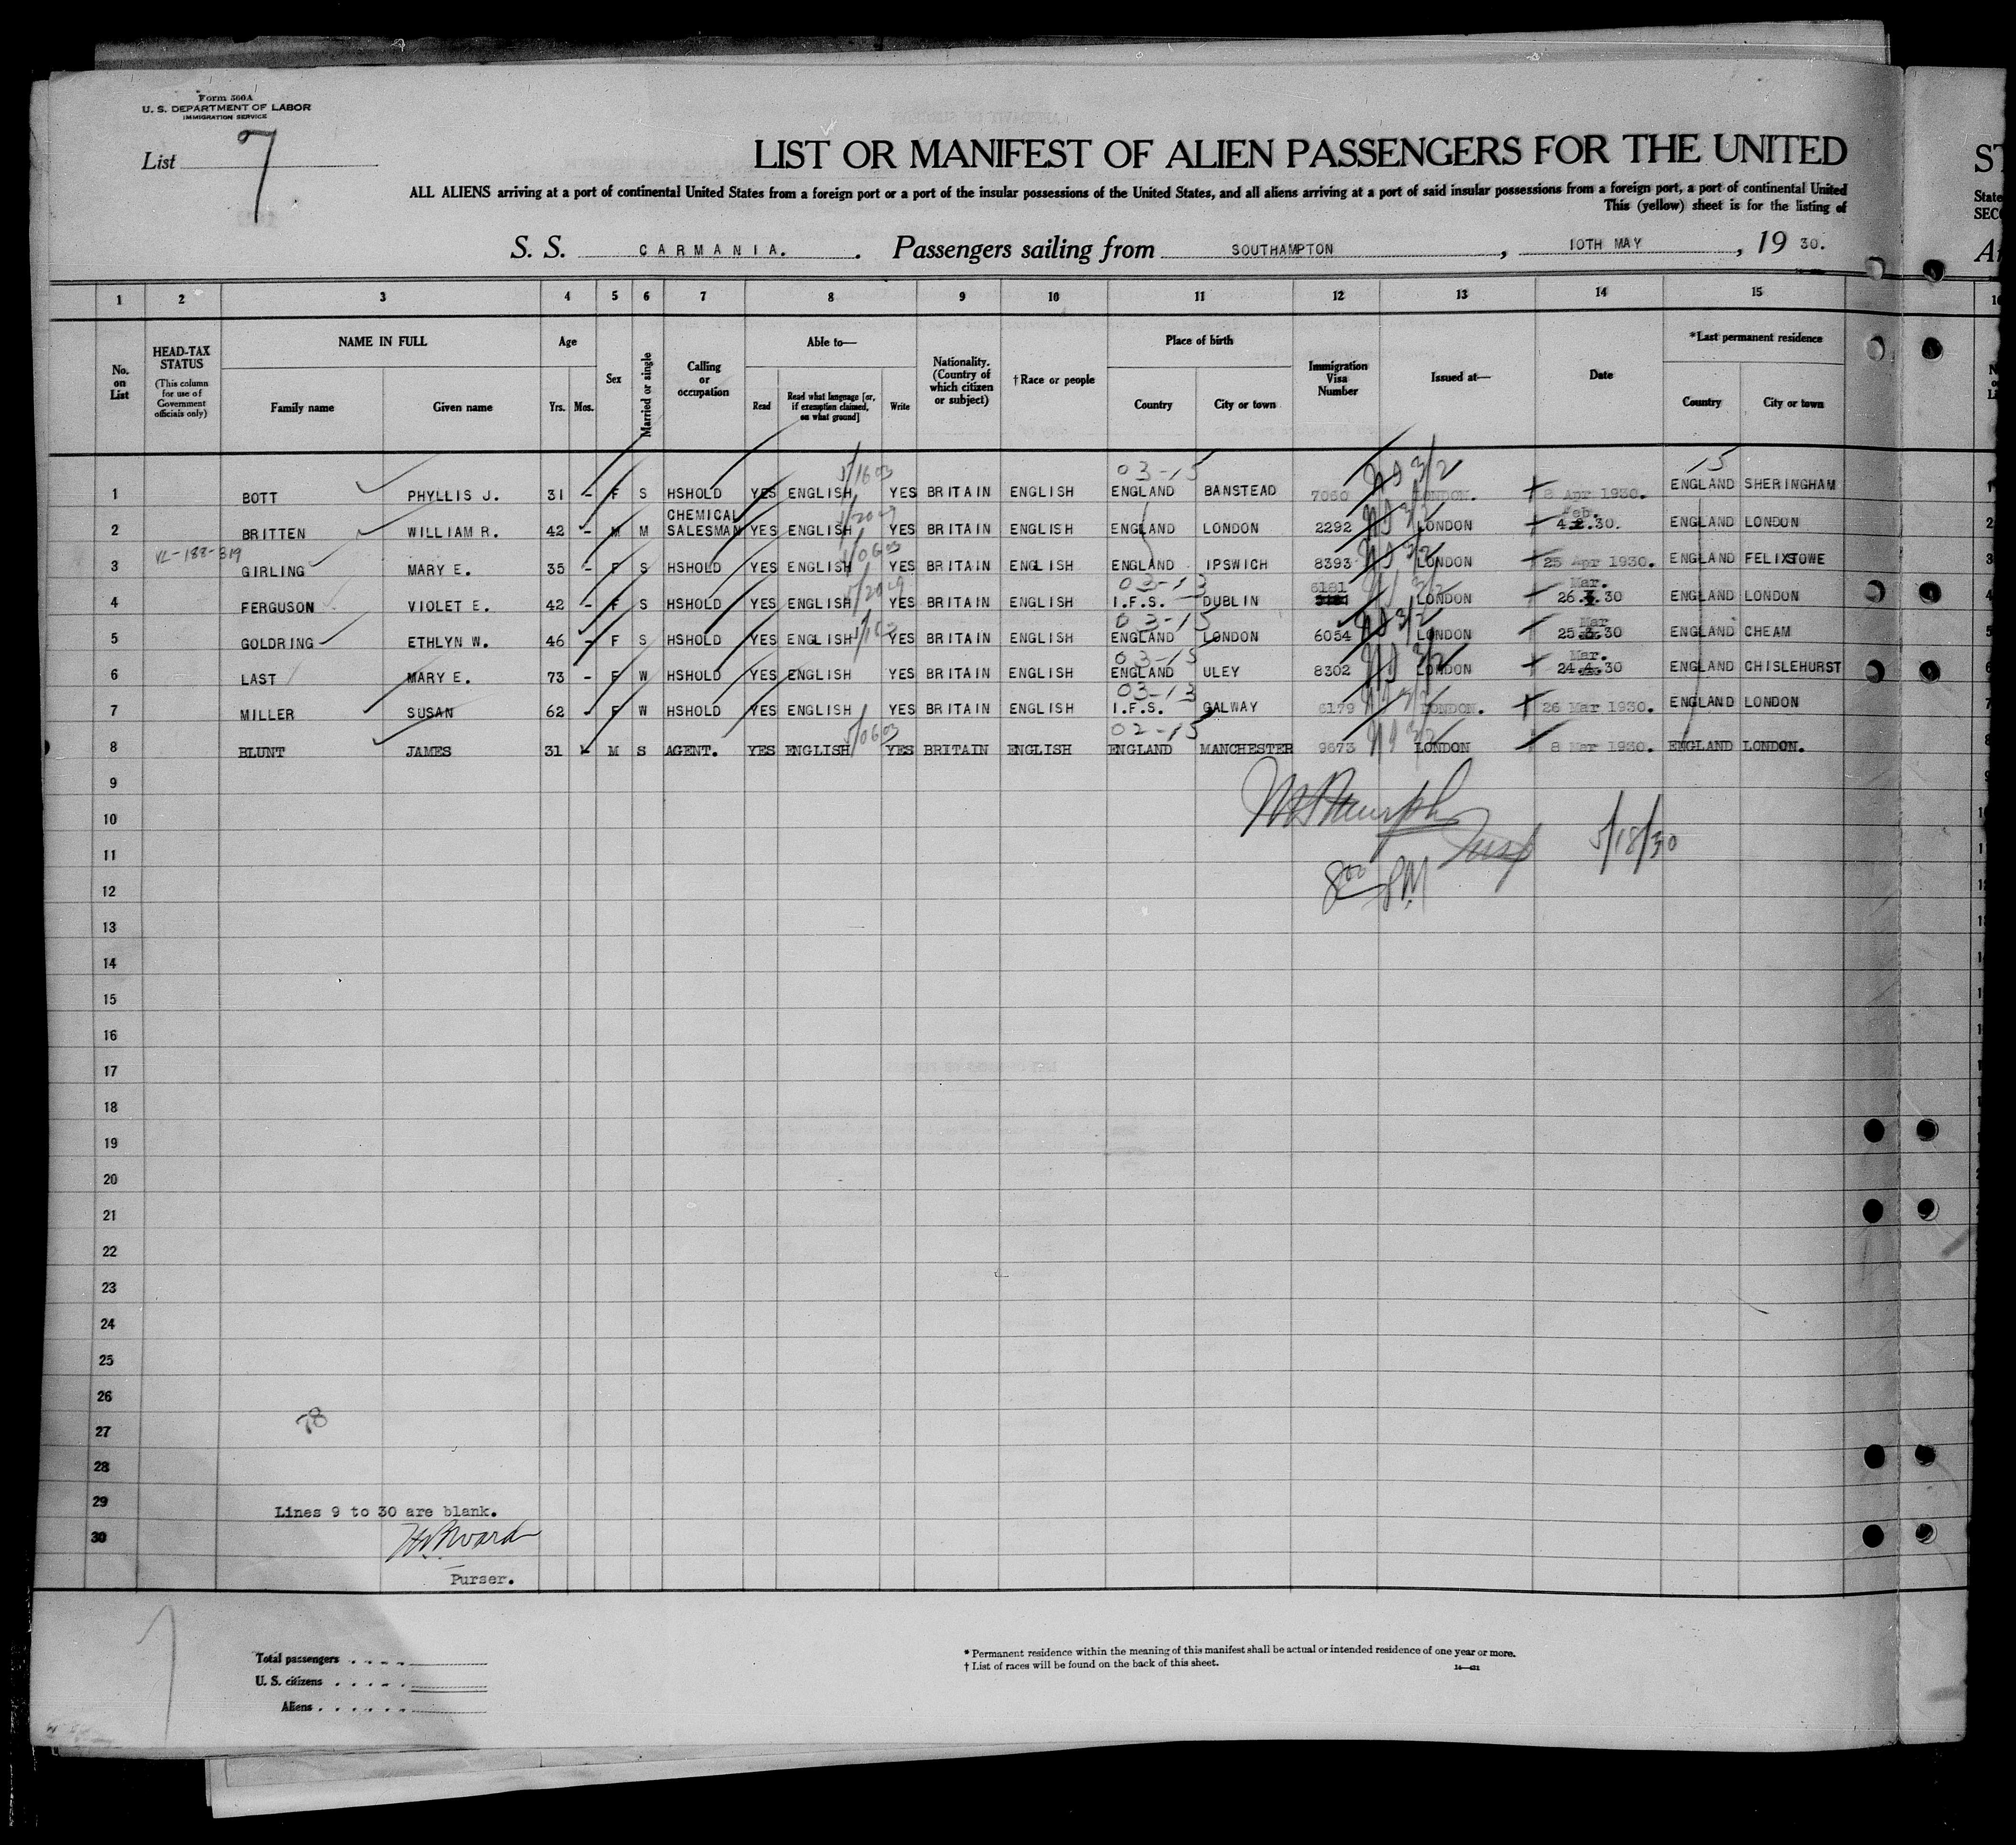 Form 500A
U. S. DEPARTMENT OF LABOR
IMMIGRATION SERVICE
List 7
LIST OR MANIFEST OF ALIEN PASSENGERS FOR THE UNITED
ALL ALIENS arriving at a port of continental United States from a foreign port or a port of the insular possessions of the United States, and all aliens arriving at a port of said insular possessions from a foreign port, a port of continental United
This (yellow) sheet is for the listing of
S. S. CARMANIA. . Passengers sailing from SOUTHAMPTON , 10TH MAY , 19 30.
1 2 3 4 5 6 7 8 9 10 11 12 13 14 15
No. on List
HEAD-TAX STATUS (This column for use of Government officials only)
NAME IN FULL Family name Given name
Age Yrs. Mos.
Sex
Married or single
Calling or occupation
Able to— Read Read what language [or, if exemption claimed, on what ground] Write
Nationality. (Country of which citizen or subject)
†Race or people
Place of birth Country City or town
Immigration Visa Number
Issued at—
Date
*Last permanent residence Country City or town
03-15 15
1 BOTT PHYLLIS J. 31 - F S HSHOLD YES ENGLISH YES BRITAIN ENGLISH ENGLAND BANSTEAD 7060 LONDON. 8 Apr 1930. ENGLAND SHERINGHAM
2 BRITTEN WILLIAM R. 42 - M M CHEMICAL SALESMAN YES ENGLISH YES BRITAIN ENGLISH ENGLAND LONDON 2292 LONDON Feb. 4.2.30. ENGLAND LONDON
VL-188-319
3 GIRLING MARY E. 35 - F S HSHOLD YES ENGLISH YES BRITAIN ENGLISH ENGLAND IPSWICH 8393 LONDON 25 Apr 1930. ENGLAND FELIXSTOWE
03-13
4 FERGUSON VIOLET E. 42 - F S HSHOLD YES ENGLISH YES BRITAIN ENGLISH I.F.S. DUBLIN 6181 LONDON Mar. 26.3.30 ENGLAND LONDON
03-15
5 GOLDRING ETHLYN W. 46 - F S HSHOLD YES ENGLISH YES BRITAIN ENGLISH ENGLAND LONDON 6054 LONDON Mar 25.3.30 ENGLAND CHEAM
03-15
6 LAST MARY E. 73 - F W HSHOLD YES ENGLISH YES BRITAIN ENGLISH ENGLAND ULEY 8302 LONDON Mar. 24.4.30 ENGLAND CHISLEHURST
03-13
7 MILLER SUSAN 62 - F W HSHOLD YES ENGLISH YES BRITAIN ENGLISH I.F.S. GALWAY 6179 LONDON. 26 Mar 1930. ENGLAND LONDON
02-15
8 BLUNT JAMES 31 - M S AGENT. YES ENGLISH YES BRITAIN ENGLISH ENGLAND MANCHESTER 9673 LONDON 8 Mar 1930. ENGLAND LONDON.
9
10
11 Insp 5/18/30
12 8 00 PM
13
14
15
16
17
18
19
20
21
22
23
24
25
26
27
28
29
Lines 9 to 30 are blank.
30
Purser.
Total passengers
U. S. citizens
Aliens
* Permanent residence within the meaning of this manifest shall be actual or intended residence of one year or more.
† List of races will be found on the back of this sheet.